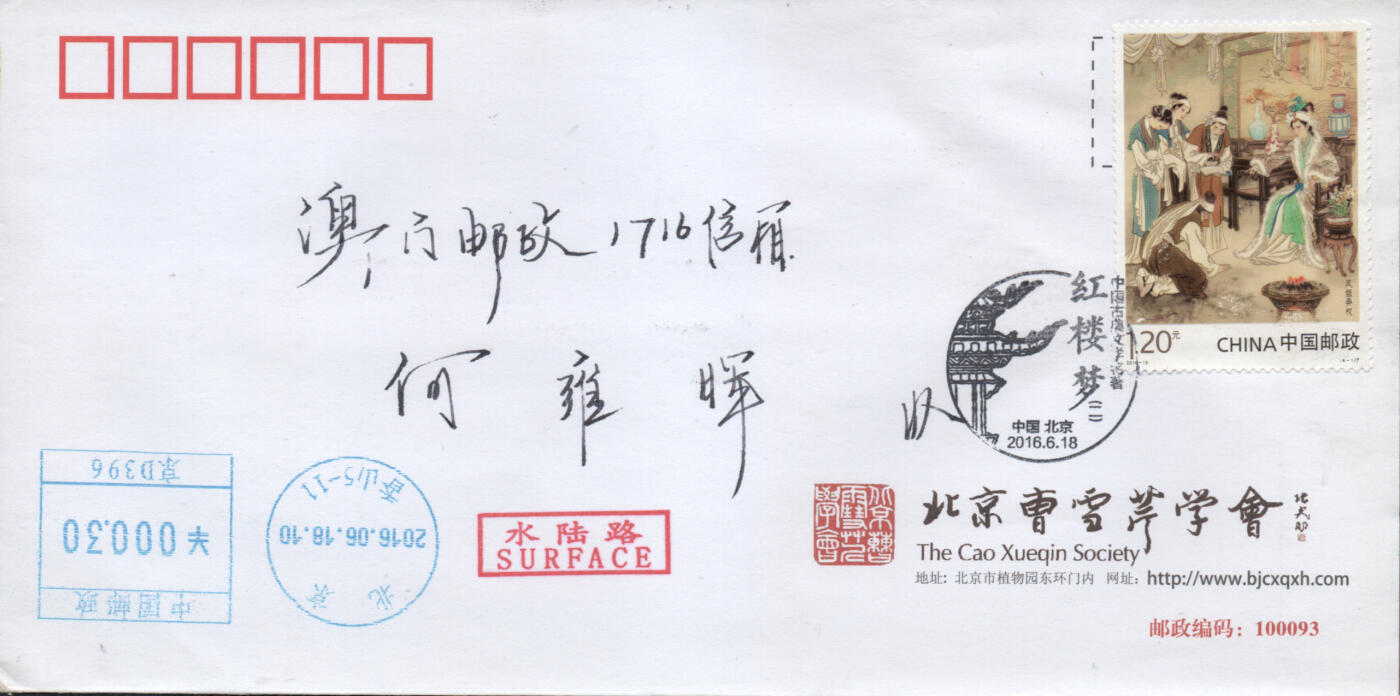 凤姐弄权
1.20元
CHINA 中国邮政
2016-15
澳门邮政1716信箱
何雍晖 收
红楼梦(二)
中国古典文学名著
中国 北京
2016.6.18
京D396
¥000.30
中国邮政
香山5-11
2016.06.18.10
北京
水陆路
SURFACE
北京曹雪芹学会
北京曹雪芹學會
The Cao Xueqin Society
地址: 北京市植物园东环门内 网址: http://www.bjcxqxh.com
邮政编码: 100093